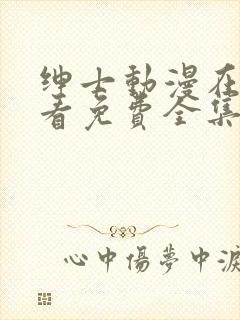 绅士動漫在
看免費全集
心中傷夢中淚